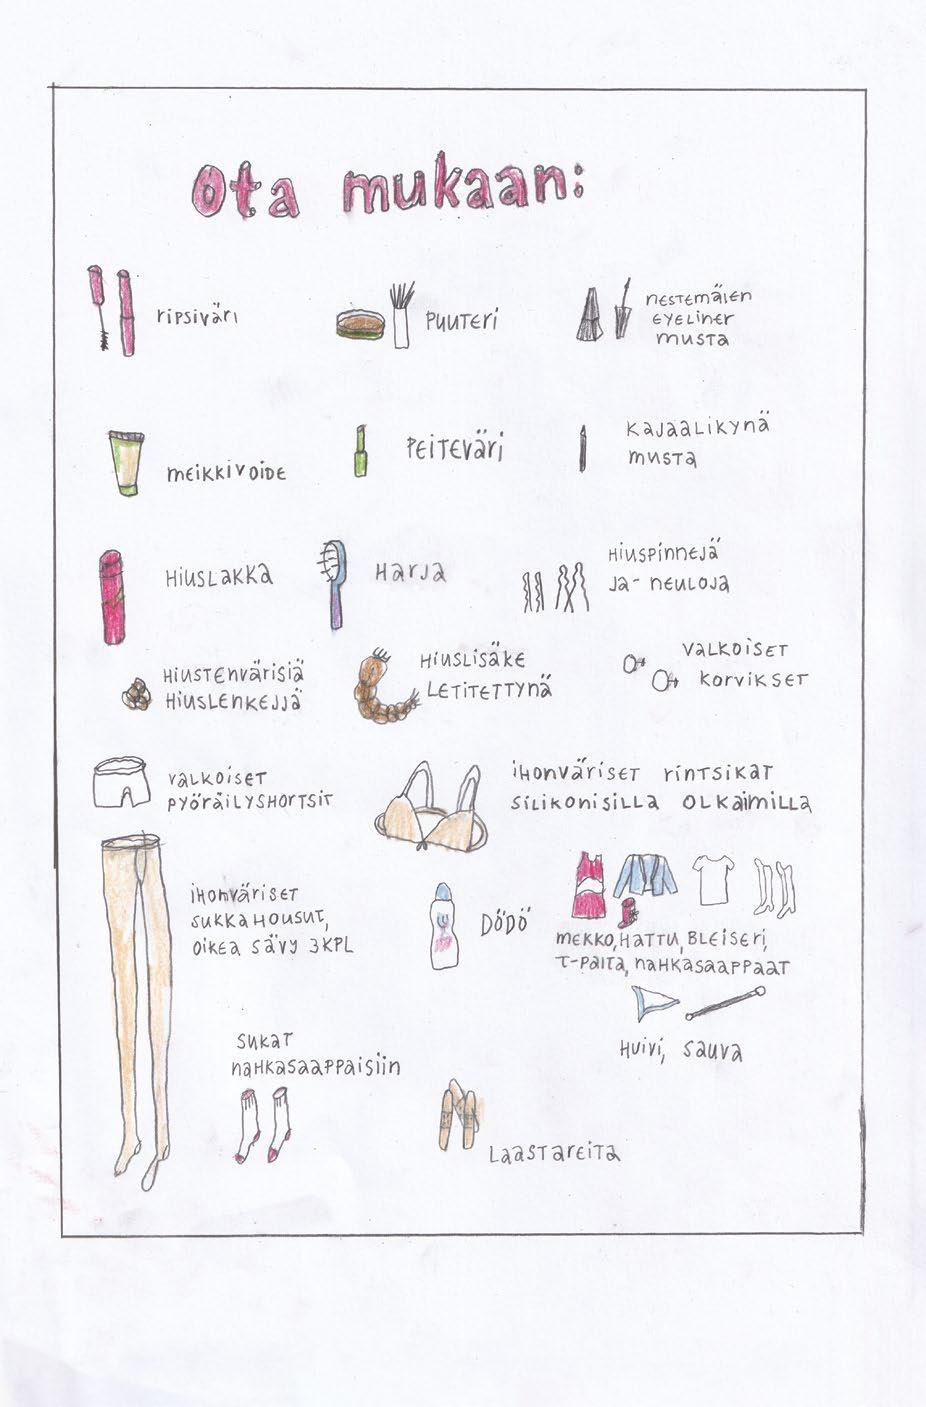 Ota mukaan:
ripsiväri
Puuteri
nestemäien
eyeliner
musta
meikkivoide
Peiteväri
Kajaalikynä
musta
Hiuslakka
Harja
Hiuspinnejä
ja- neuloja
Hiustenvärisiä
Hiuslenkejjä
Hiuslisäke
Letitettynä
Valkoiset
korvikset
Valkoiset
pyöräilyshortsit
ihonväriset rintsikat
silikonisilla olkaimilla
ihonväriset
sukkahousut,
oikea sävy 3kpl
Dödö
mekko, hattu, bleiseri,
t-paita, nahkasaappaat
Huivi, sauva
sukat
nahkasaappaisiin
Laastareita